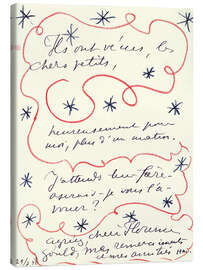 Ils ont vécus, les
chers petits,
heureusement pour
moi, plus d'un matin.
J'attends leur frère
oserais-je vous l'a-
vouer ?
chère Florence
Gould, mes remerciements